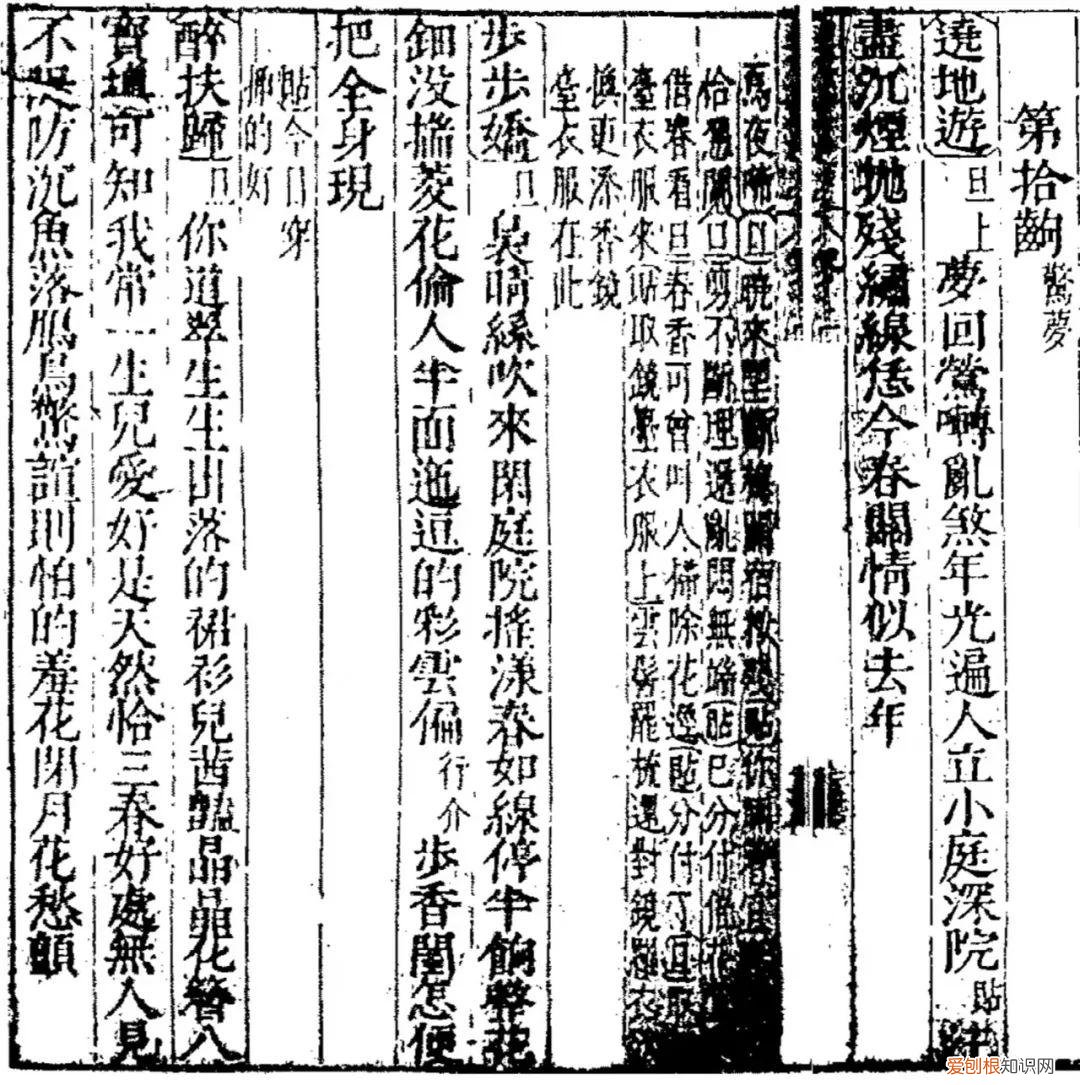 第拾齣 驚夢
遶地遊 旦上 夢回鶯囀亂煞年光遍人立小庭深院 貼 炷
盡沉煙抛殘繡線恁今春關情似去年
烏夜啼 旦 曉來望斷梅關宿粧殘 貼 你
恰凭闌 旦 剪不斷理還亂悶無端 貼 已分付催花
借春看 旦 春香可曾叫人掃除花逕 貼 分付了 旦 取
臺衣服來 貼 取鏡臺衣服上雲髻罷梳還對鏡羅衣
換更添香鏡
臺衣服在此
步步嬌 旦 裊晴絲吹來閑庭院搖漾春如線停半餉整花
鈿没揣菱花偷人半面迤逗的彩雲偏 行介 步香閨怎便
把全身現
貼今日穿
插的好
醉扶歸 旦 你道翠生生出落的裙衫兒茜豔晶晶花簪八
寳填可知我常一生兒愛好是天然恰三春好處無人見
不隄防沉魚落鴈鳥驚諠則怕的羞花閉月花愁顫
爱刨根知识网